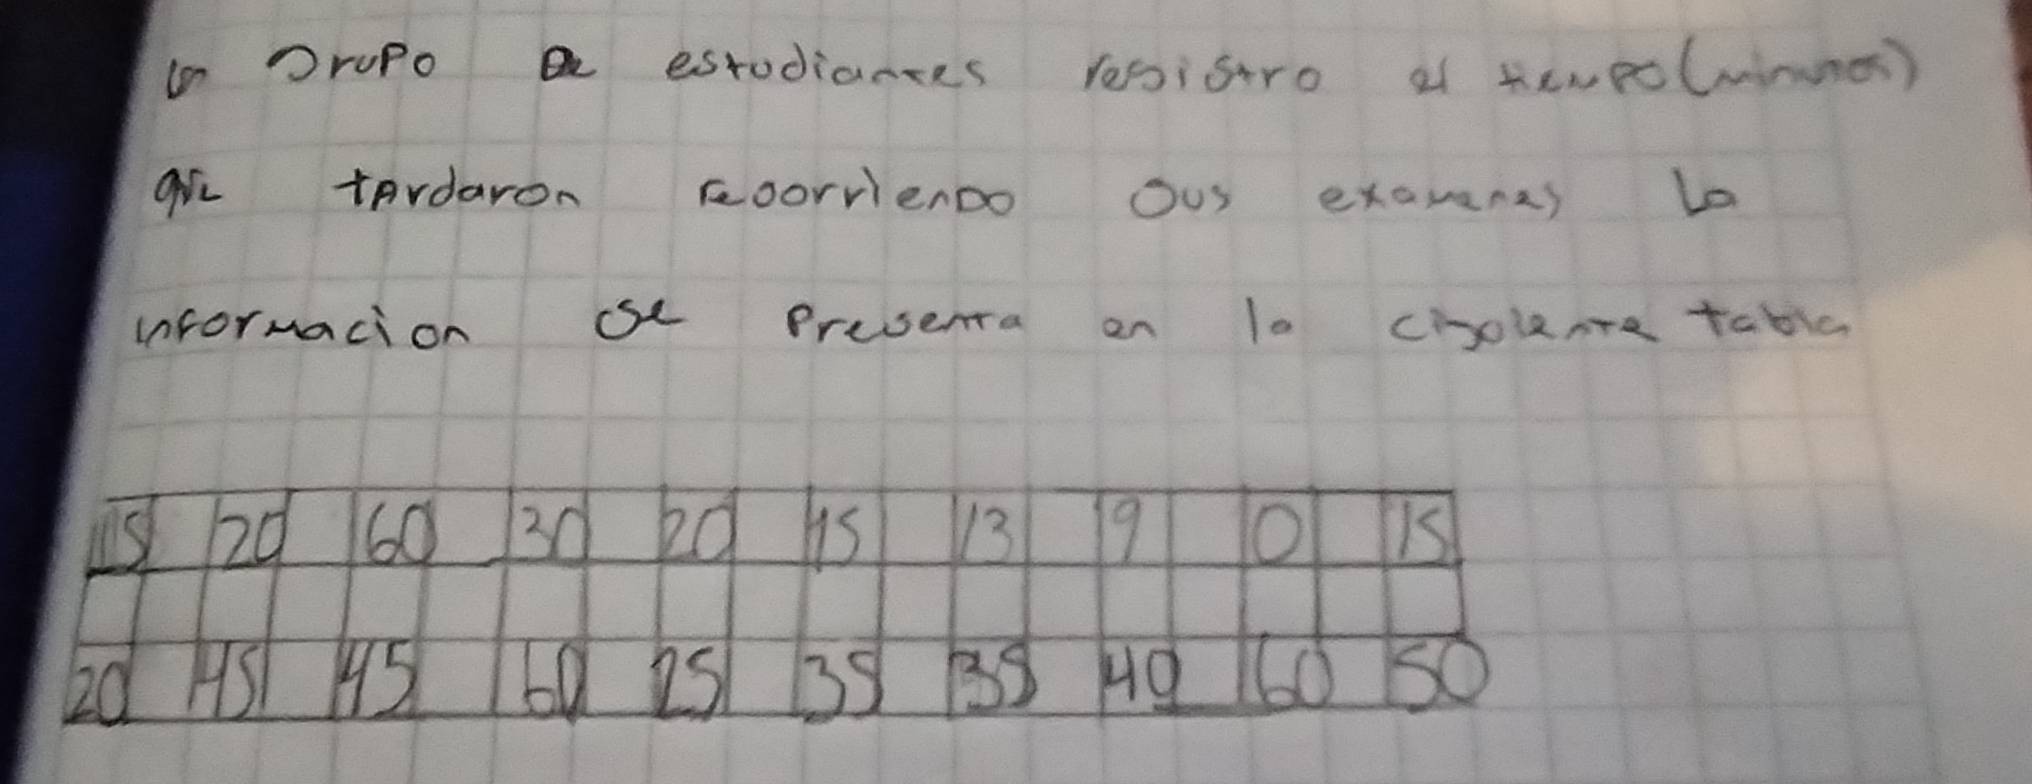 un Grupo de estudiantes resistro el tiempo (minutos)
que tardaron recorriendo sus examenes la
informacion se presenta en la ciguiente tabla
15 20 60 30 20 15 13 19 0 15
20 45 45 60 25 35 35 40 60 50